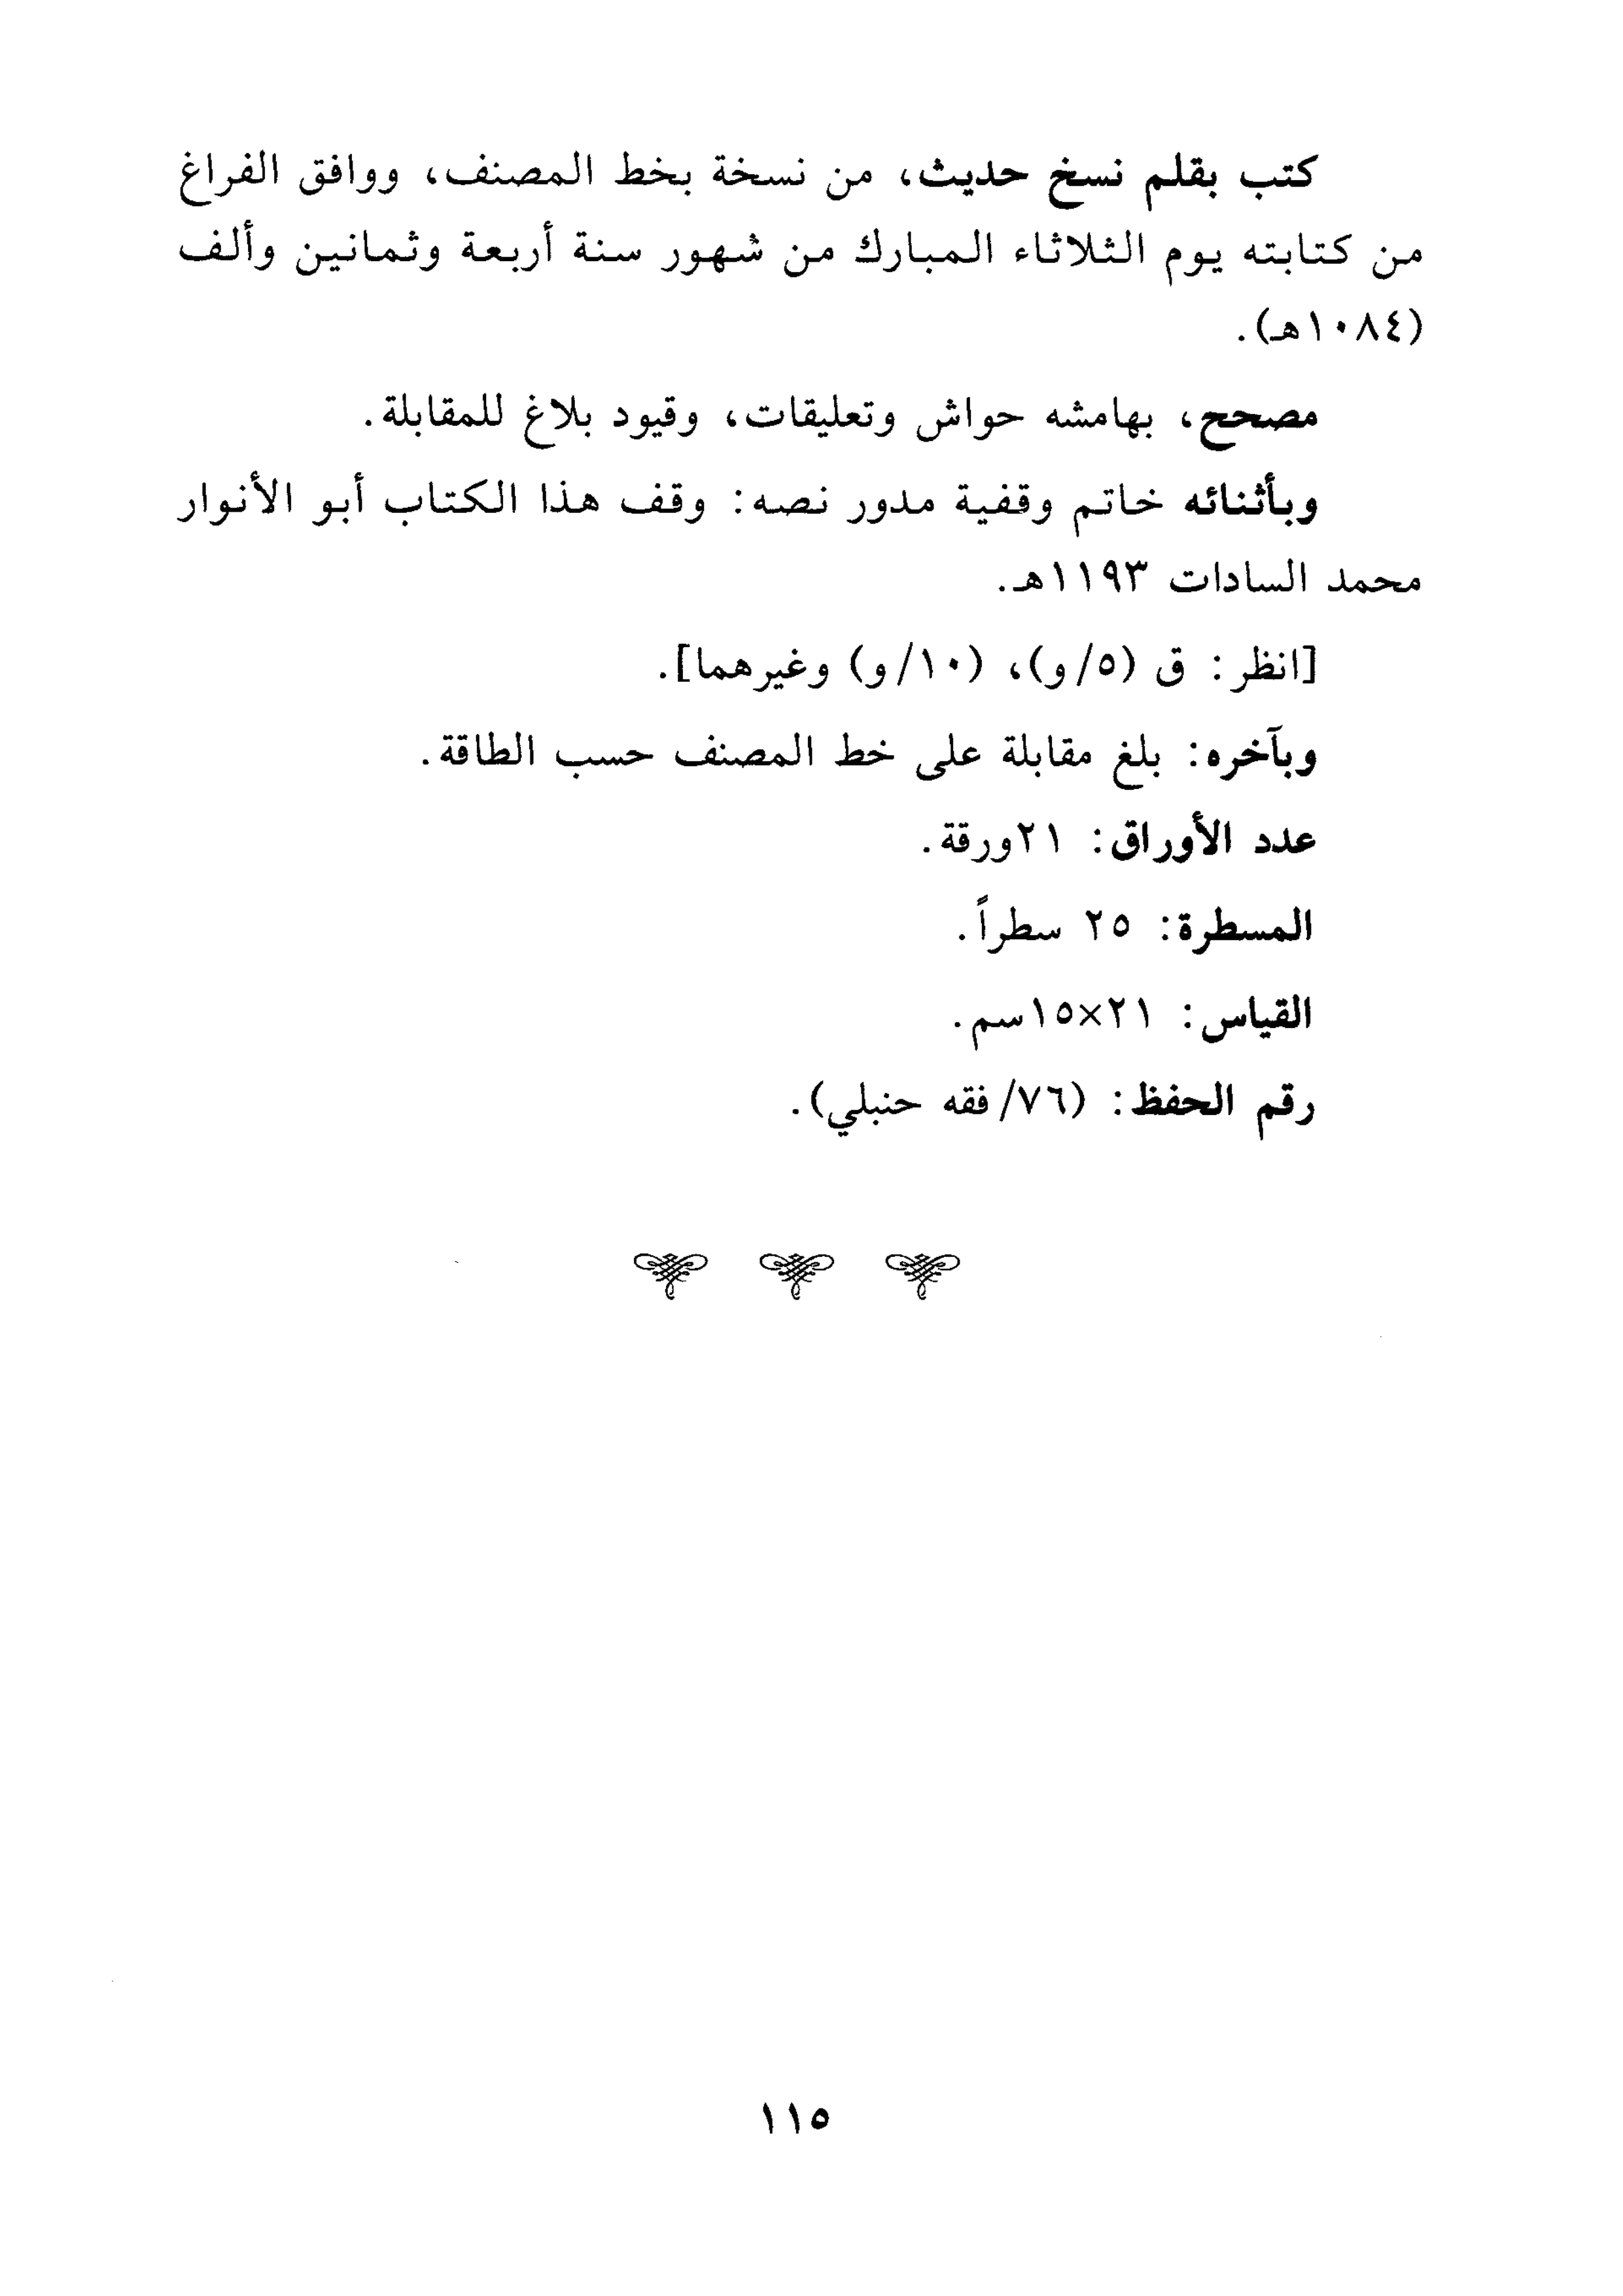 كتب بقلم نسخ حديث، من نسخة بخط المصنف، ووافق الفراغ
من كتابته يوم الثلاثاء المبارك من شهور سنة أربعة وثمانين وألف
(١٠٨٤هـ).
مصحح، بهامشه حواش وتعليقات، وقيود بلاغ للمقابلة.
وبأثنائه خاتم وقفية مدور نصه: وقف هذا الكتاب أبو الأنوار
محمد السادات ١١٩٣هـ.
[انظر: ق (٥/و)، (١٠/و) وغيرهما].
وبآخره: بلغ مقابلة على خط المصنف حسب الطاقة.
عدد الأوراق: ٢١ورقة.
المسطرة: ٢٥ سطراً.
القياس: ٢١×١٥سم.
رقم الحفظ: (٧٦/فقه حنبلي).
١١٥